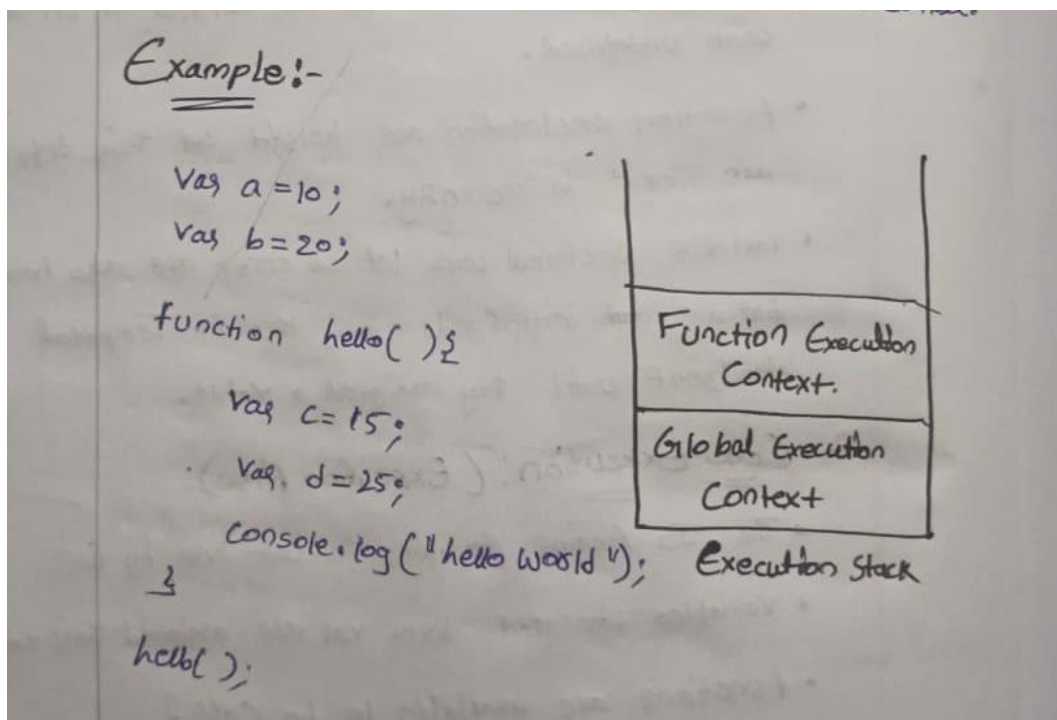 Example:-
Var a = 10;
Var b = 20;
function hello( ){
Var c = 15;
Var d = 25;
console.log("hello world");
}
hello( );
Function Execution
Context.
Global Execution
Context
Execution Stack